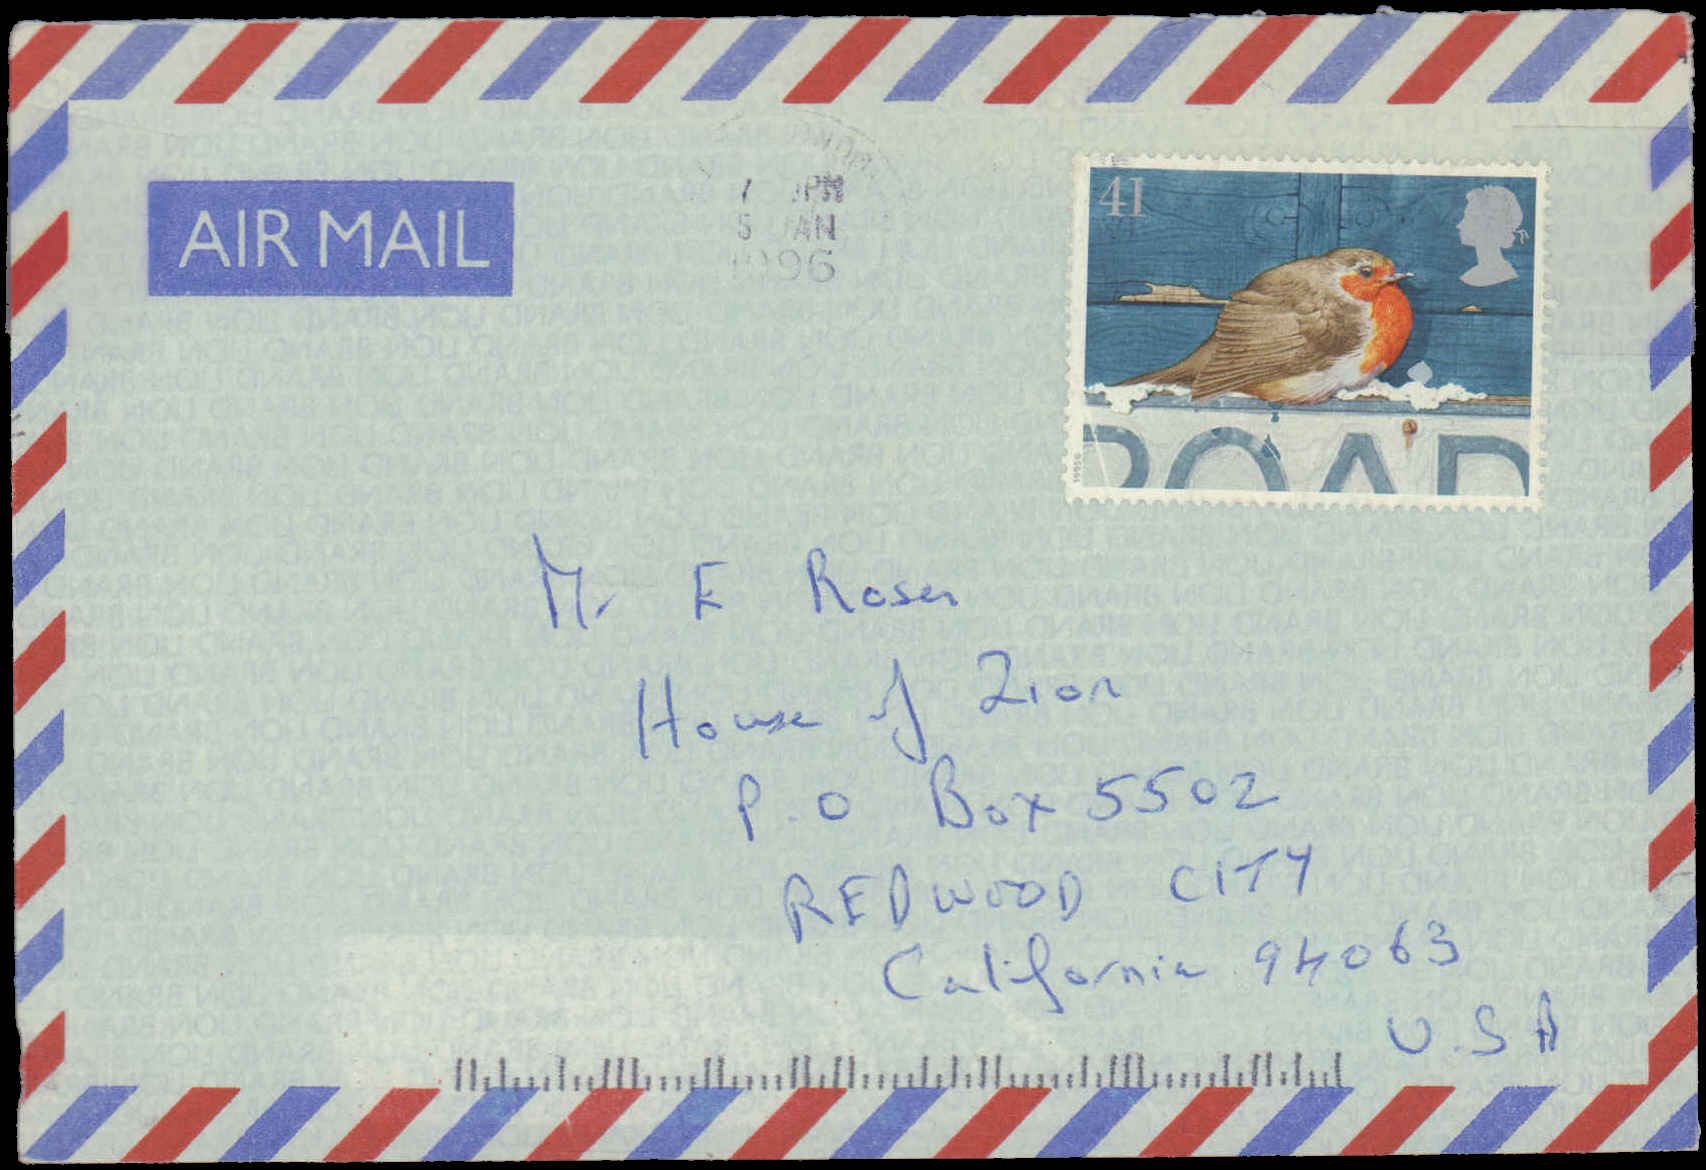 AIR MAIL
PM
5 JAN
1996
41
ROAD
Mr E Rosen
House of Zion
P.O Box 5502
REDWOOD CITY
California 94063
U.S A